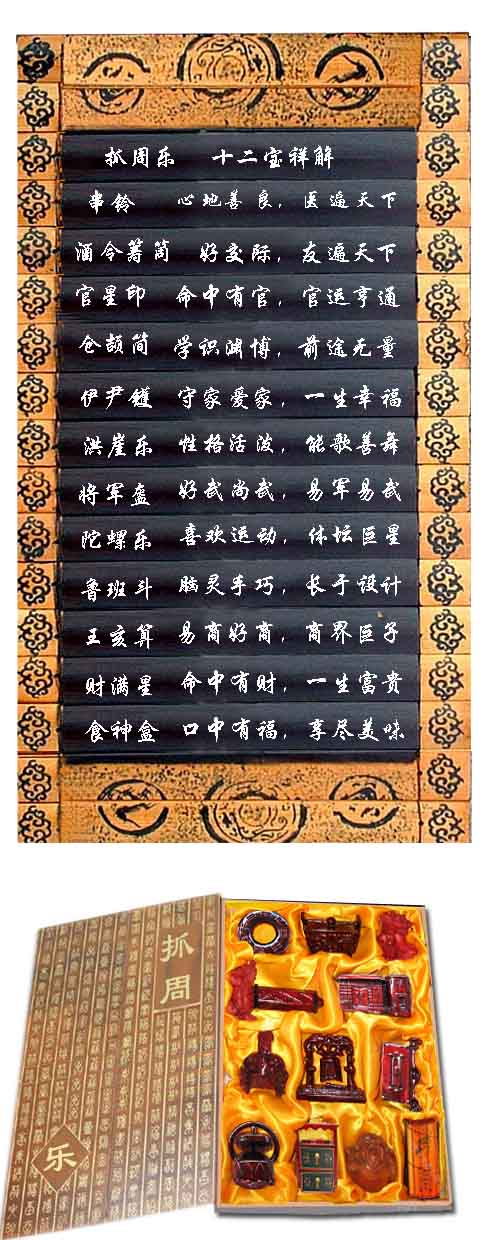 抓周乐 十二宝祥解
串铃 心地善良，医遍天下
酒令筹筒 好交际，友遍天下
官星印 命中有官，官运亨通
仓颉简 学识渊博，前途无量
伊尹镬 守家爱家，一生幸福
洪崖乐 性格活泼，能歌善舞
将军盔 好武尚武，易军易武
陀螺乐 喜欢运动，体坛巨星
鲁班斗 脑灵手巧，长于设计
王亥算 易商好商，商界巨子
财满星 命中有财，一生富贵
食神盒 口中有福，享尽美味
抓周
乐